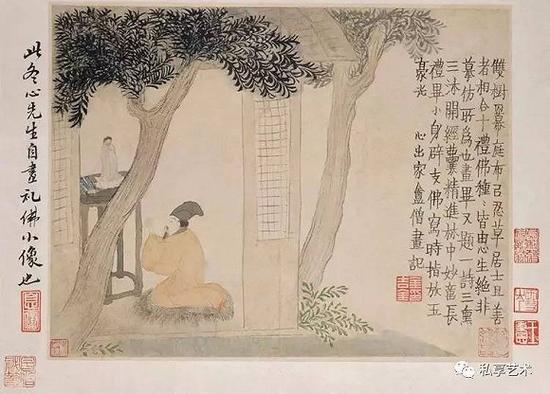 雙樹羃庭布㠯忍草居士且善
者相合十禮佛種〻皆由心生絕非
摹仿所為也畫畢又題一詩三熏
三沐開經囊精進林中妙意長
禮畢小身辟支佛寫時指放玉
豪光 心出家盦僧畫記
此冬心先生自畫礼佛小像也
私享艺术